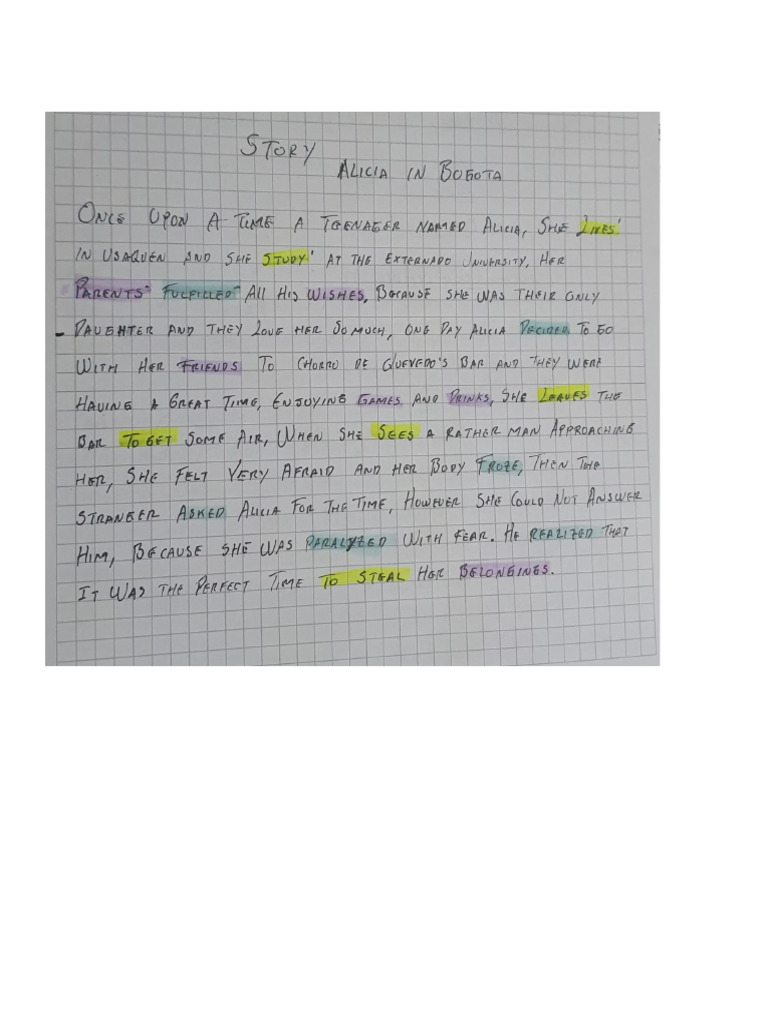 STORY
ALICIA IN BOGOTA
ONCE UPON A TIME A TEENAGER NAMED ALICIA, SHE LIVES
IN USAQUEN AND SHE STUDY AT THE EXTERNADO UNIVERSITY, HER
PARENTS FULFILLED All HIS WISHES, BECAUSE SHE WAS THEIR ONLY
DAUGHTER AND THEY LOVE HER SO MUCH, ONE DAY ALICIA DECIDED TO GO
WITH HER FRIENDS TO CHORRO DE QUEVEDO'S BAR AND THEY WERE
HAVING A GREAT TIME, ENJOYING GAMES AND DRINKS, SHE LEAVES THE
BAR TO GET SOME AIR, WHEN SHE SEES A RATHER MAN APPROACHING
HER, SHE FELT VERY AFRAID AND HER BODY FROZE, THEN THE
STRANGER ASKED ALICIA FOR THE TIME, HOWEVER SHE COULD NOT ANSWER
HIM, BECAUSE SHE WAS PARALYZED WITH FEAR. HE REALIZED THAT
IT WAS THE PERFECT TIME TO STEAL HER BELONGINGS.